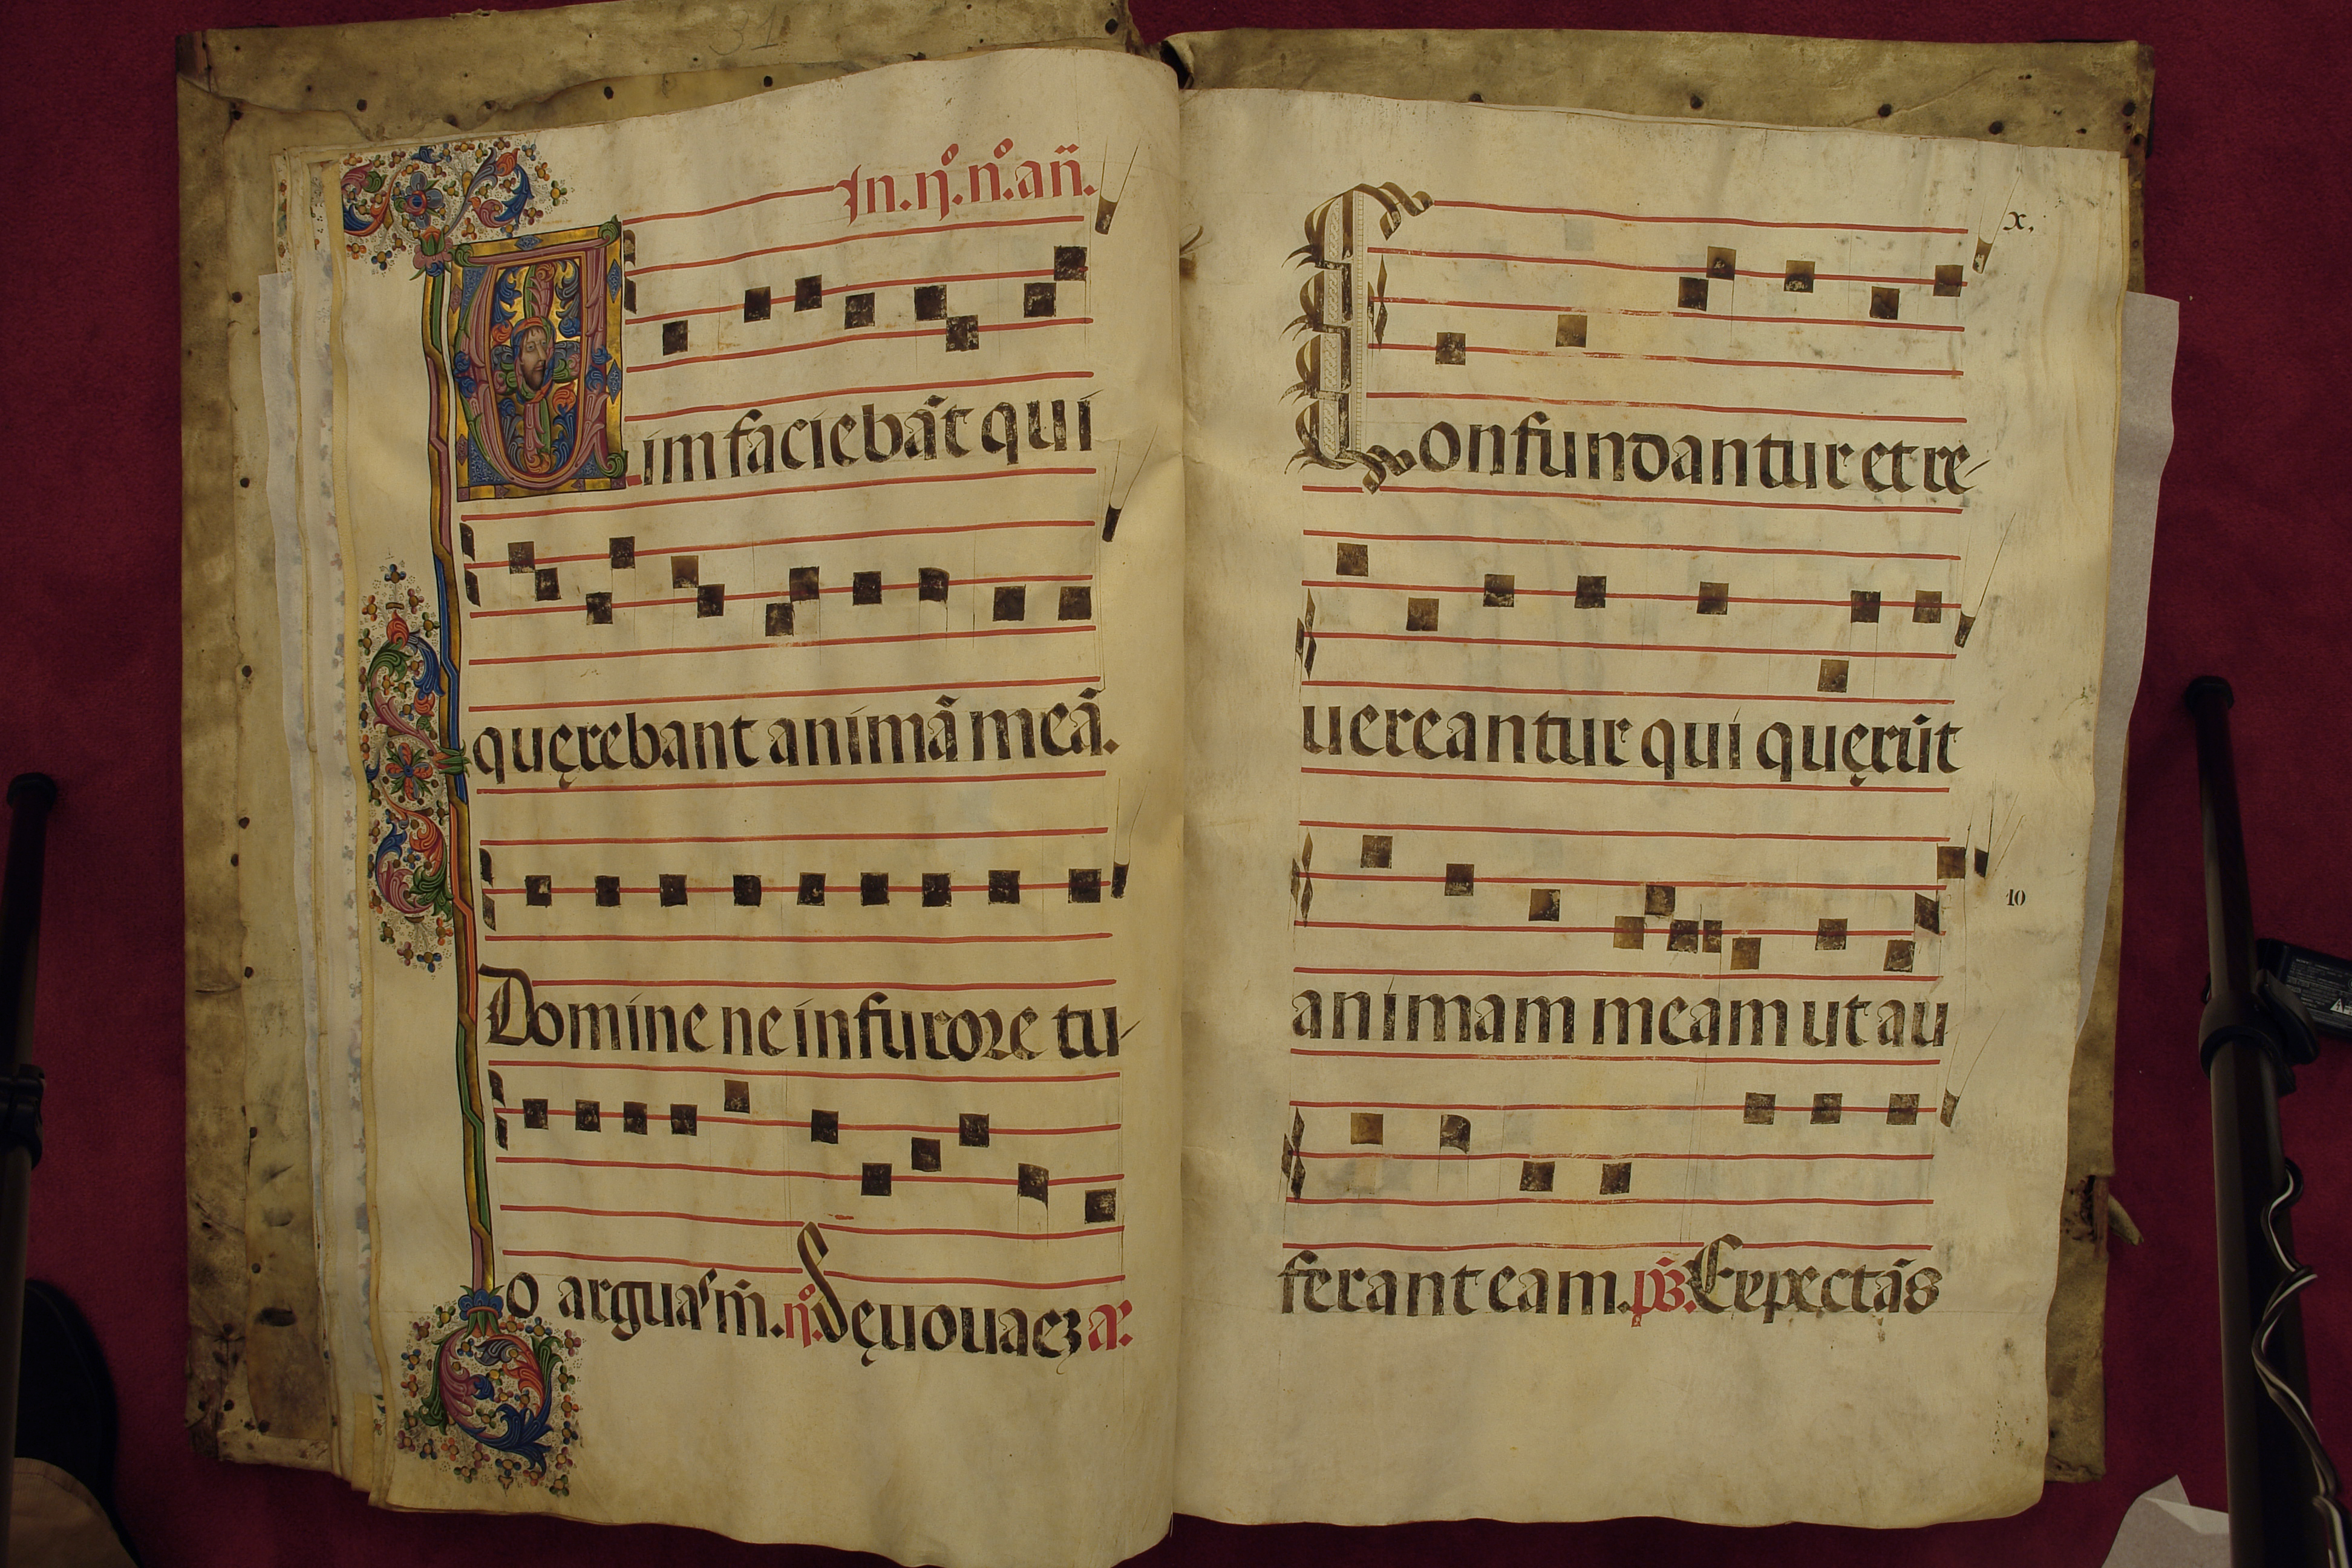 31
In. ij.º n.º an̄.
Vim faciebāt qui
quęrebant animā meā.
Domine ne in furore tu-
o arguas m̄. ij.º Sęuouaeꝫ a.
x.
Confundantur et re-
uereantur qui quęrūt
animam meam ut au
10
ferant eam. ps̄. Expectās